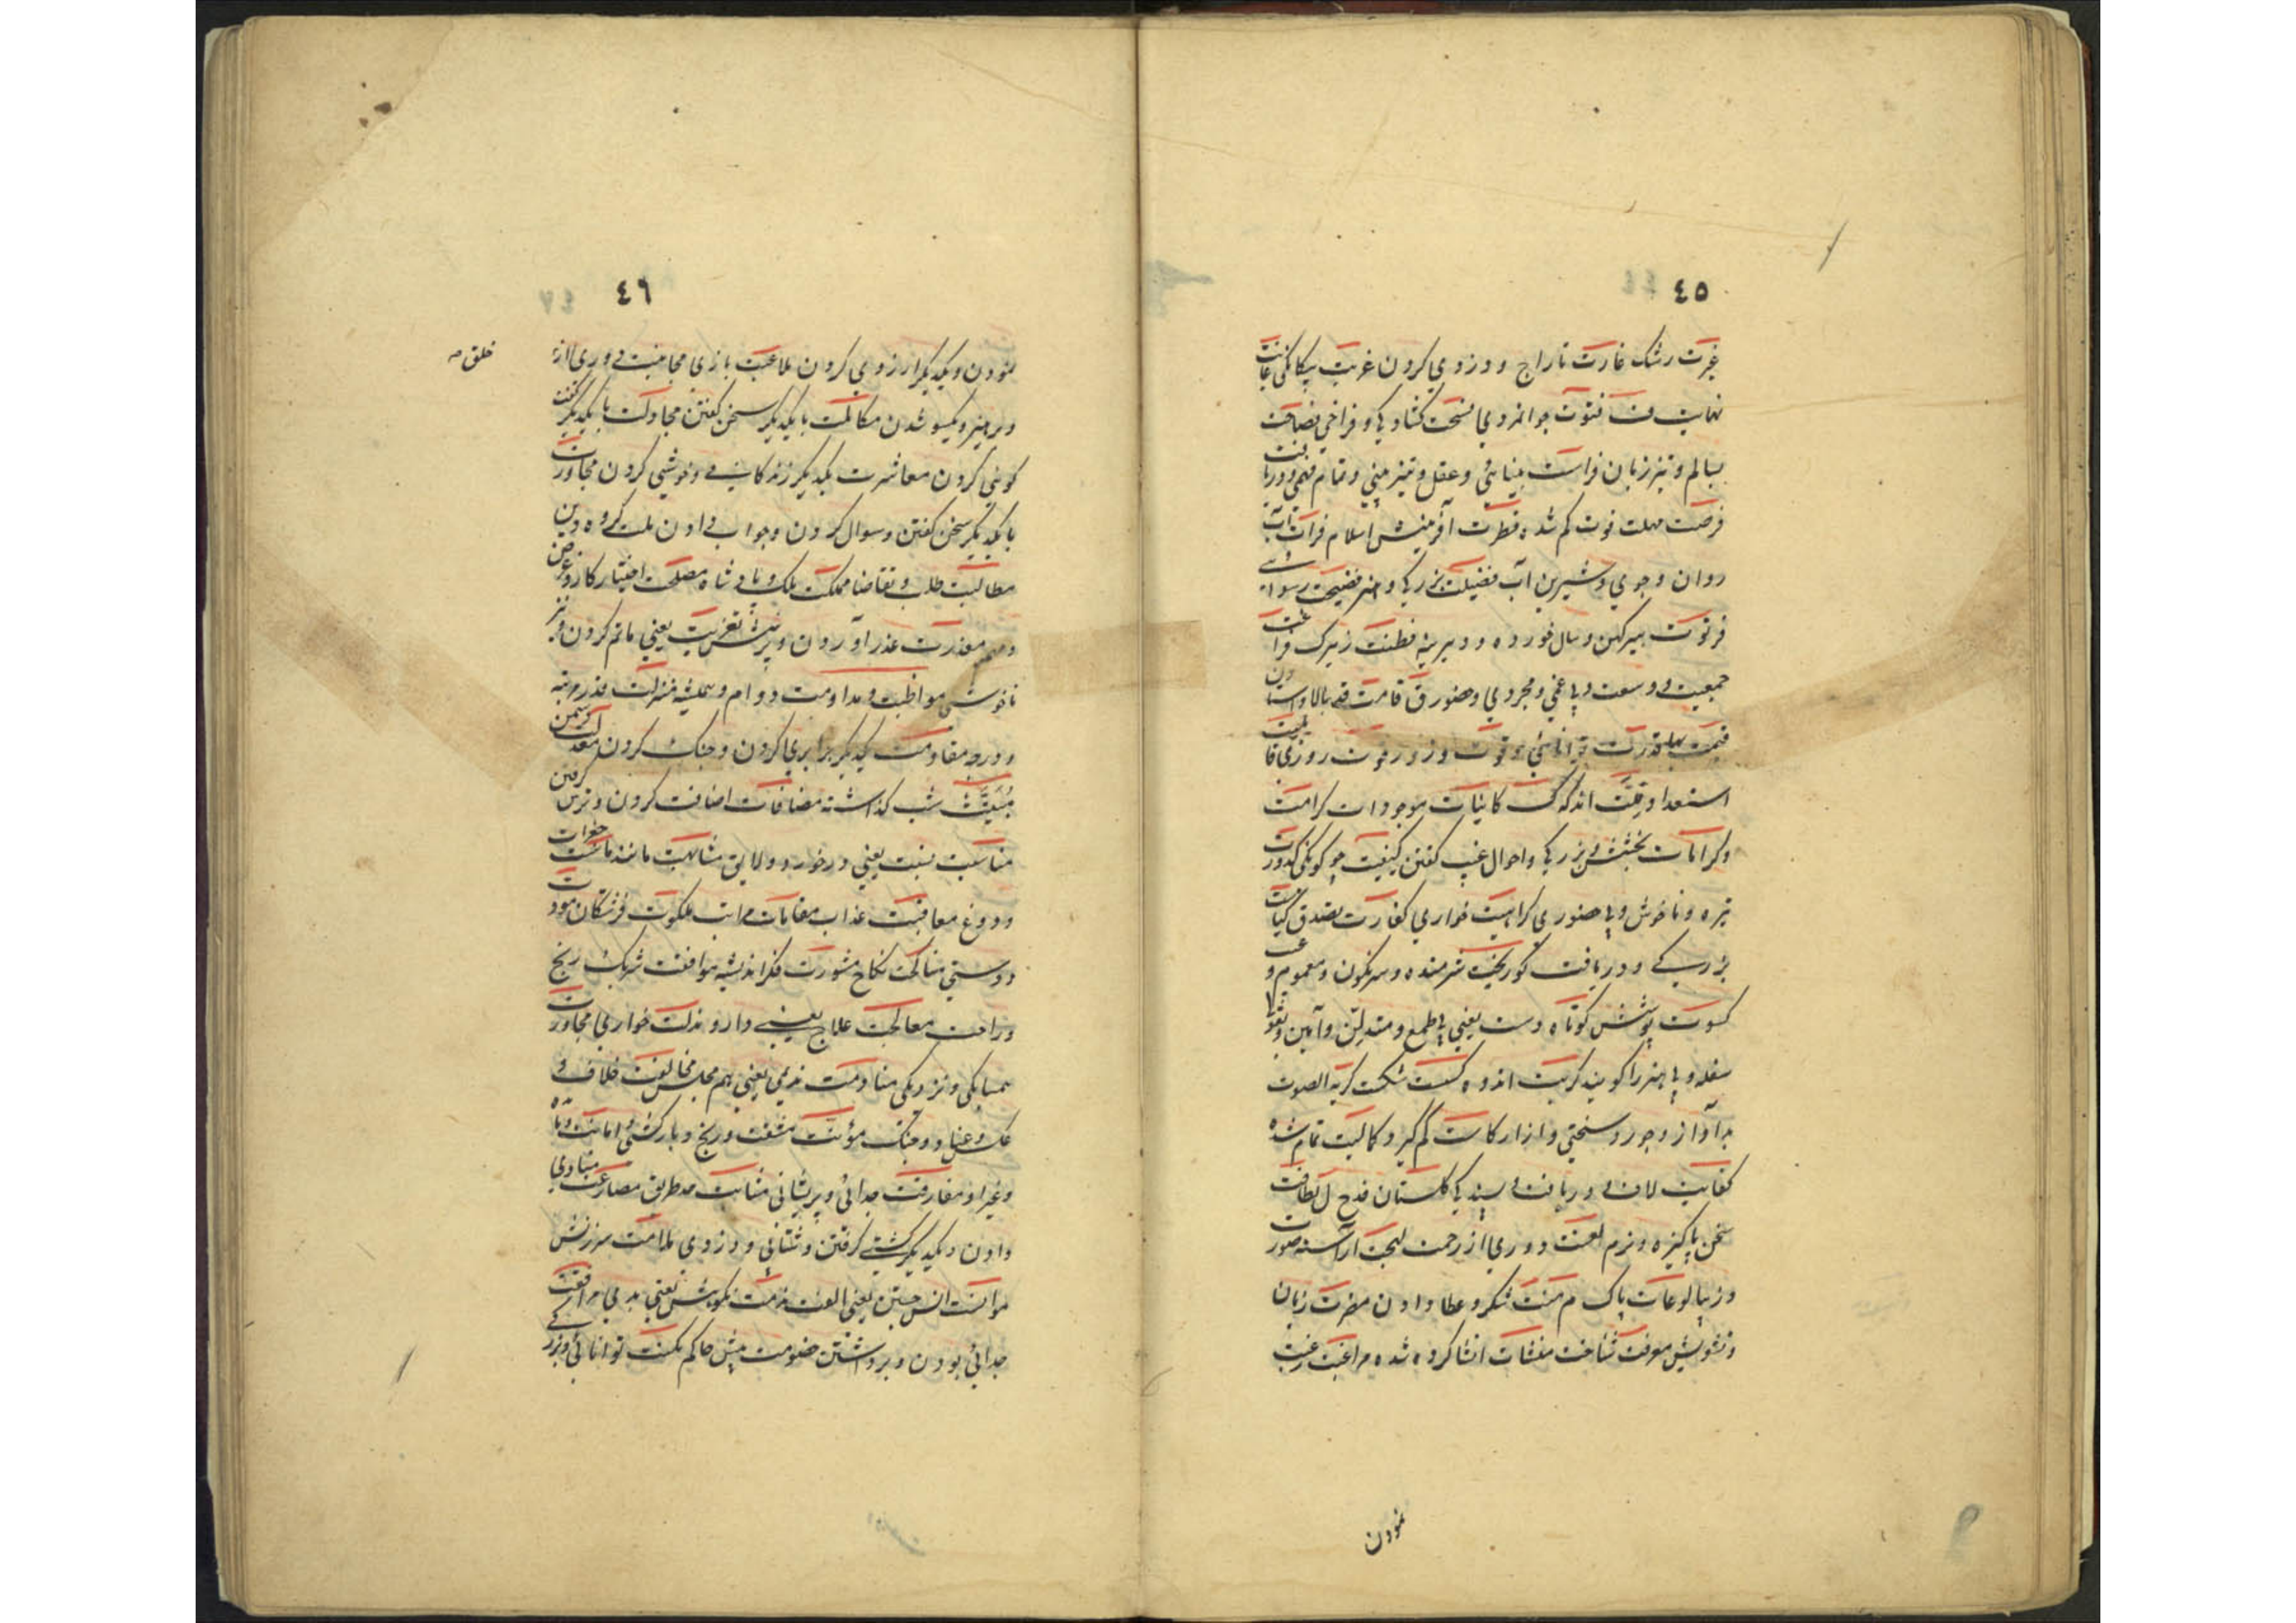 ٤٥
غیرت رشک غارت تاراج و دزدی کردن غربت بیکانکی غایت
نهایت ف فتوت جوانمردی فسحت کشادکی و فراخی فصاحت
بسالم و تیز زبان فراست بینائی و عقل و تیزبینی و تمام فهمی و دریافت
فرصت مهلت فوت کم شده فطرت آفرینش اسلام فرات آب
روان و جوی و شیرین آب فضیلت بزرکی و هنر فضیحت رسوائی
فرتوت پیر کهن و سال خورده و دیرینه فطنت زیرک فراغت
جمعیت و وسعت و بی غمی و مجردی و حضور ق قامت قد بالا و استادن
قیمت بها قدرت توانائی قوت و زور قوت روزی قابلیت
استعداد قلت اندکی ک کاینات موجودات کرامت
و کرامات بخشش و بزرکی و احوال غیب کفتن کیفیت چوکونکی کدورت
تیره و ناخوش و بی حضوری کراهیت خواری کفارت تصدق کیاست
بزرکی و دریافت کوربخت شرمنده و سرنکون و مغموم و
کسوت پوشش کوتاه دست یعنی بی طمع و متدین و آیین و تقوا
سفله و بی هنر را کویند کربت اندوه کسست شکست کریه الصوت
بدآواز و جور و سختی و ازار کاست کم کیر و کمالیت تمام شده
کفایت لاف و دریافت و پسندکی کلستان قدح ل لطافت
سخن پاکیزه و نرم لعنت دوری از رحمت لهجت آراسته صورت
و زیبا لوعات پاک م منت شکر و عطا دادن مضرت زیان
و تشویش معرفت شناخت منشات انشا کرده شده مراغبت رغبت
نمودن
٤٦
نمودن و یکدیکر ارزوی کردن ملاعبت بازی مجانبت دوری از
خلق صـ
و پرهیز و یکسو شدن مکالمت با یکدیکر سخن کفتن مجادلت با یکدیکر سخت
کویی کردن معاشرت یکدیکر زندکانی و خوشی کردن مجاورت
با یکدیکر سخن کفتن و سوال کردن و جواب دادن ملت کروه دین
مطالبت طلب و تقاضا مملکت ملک و پادشاه مصلحت اختیار کار و غرض
و مهم معذرت عذر اوردن و پرسش تعزیت یعنی ماتم کردن و نیز
ناخوشی مواظبت و مداومت دوام و همیشه منزلت قدر مرتبه
و درجه مقاومت یکدیکر برابری کردن و جنک کردن معدلت
مبیت شب کذاشته مضافات اضافت کردن و ترس کرفتن
مناسبت نسبت یعنی درخور و لایق مشابهت مانند ماست جغرات
و دوغ معاقبت عذاب مقامات مراتب ملکوت فرشتکان مودت
دوستی مناکحت نکاح مشورت فکر اندیشه موافقت شریک رنج
و راحت معالجت علاج یعنی دارو مذلت خواری مجاورت
همسایکی و نزدیکی منادمت ندیمی یعنی هم مجلس مخالفت خلاف و
عکس و عناد و جنک مؤنت مشقت و رنج و بارکشی اهانت
و غیر او مفارقت جدائی و پریشانی مصارعت
دادن و یکدیکر کشتی کرفتن و ملامت سرزنش
موانست انس جستن یعنی الفت مذمت نکوهش یعنی بدی مرافعت
جدائی بودن و برداشتن خصومت پیش حاکم مکنت توانائی و بزرکی